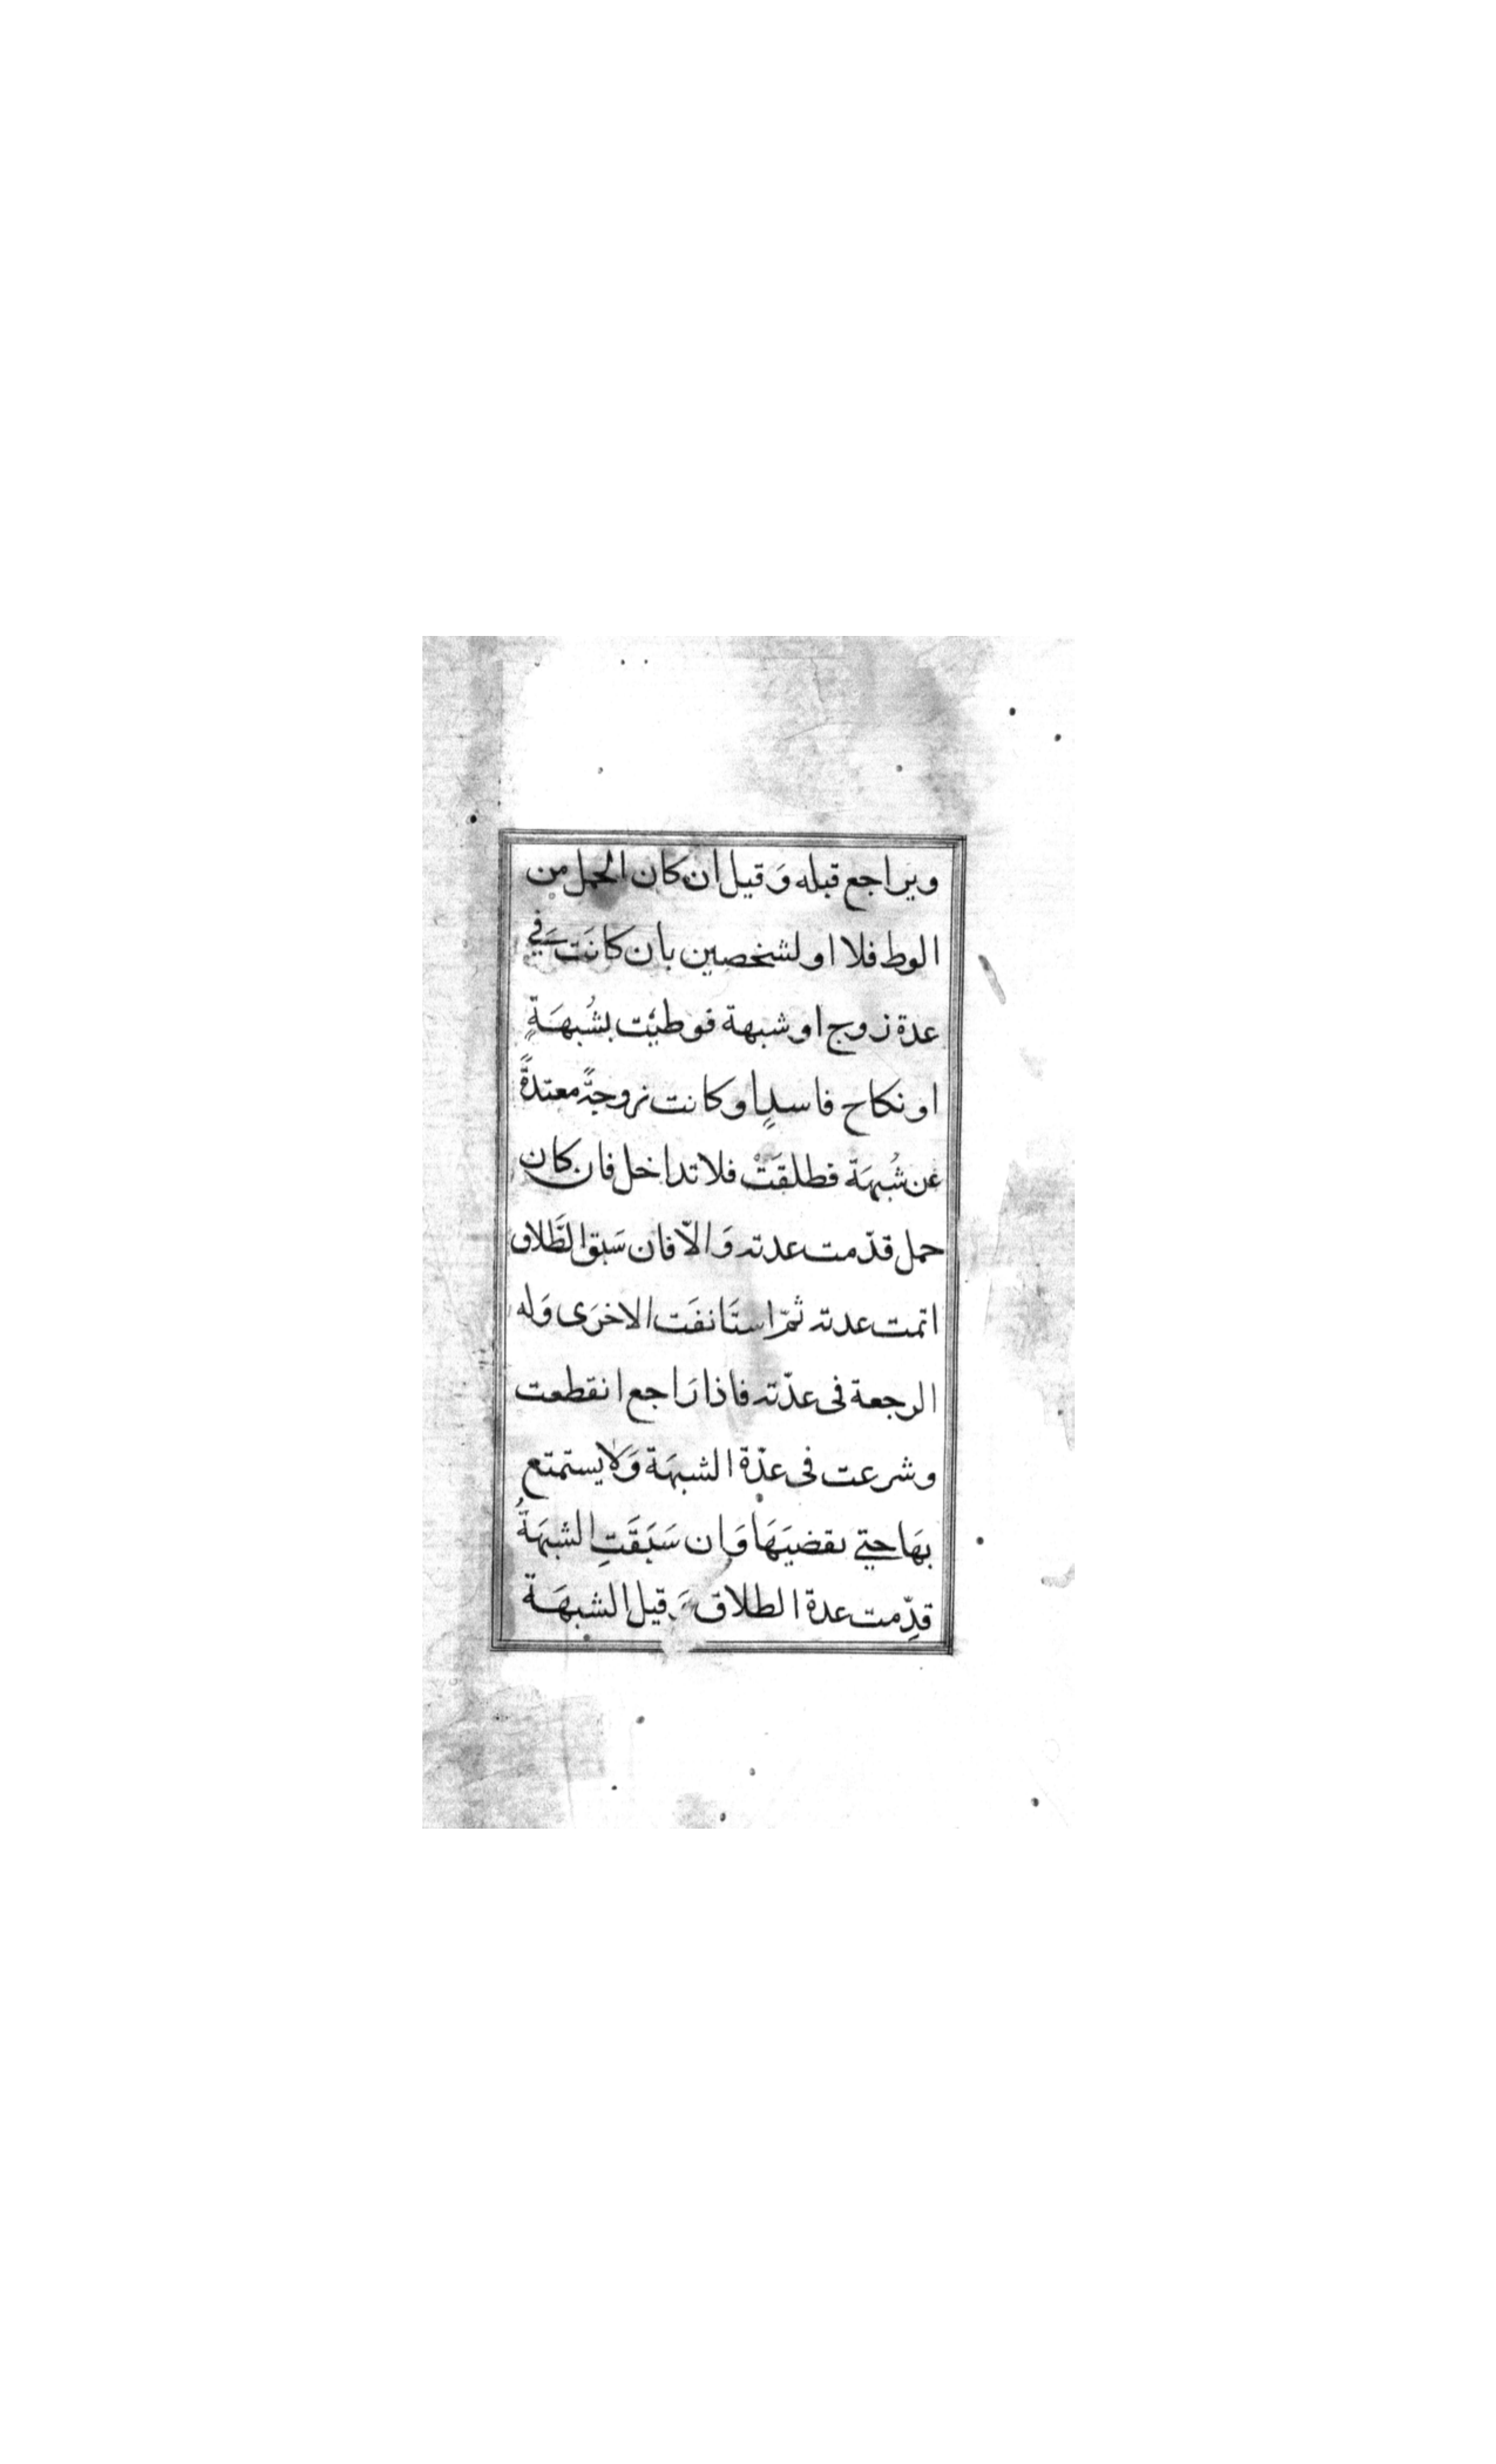 ويراجع قبله وَقيل ان كان الحمل من
الوط فلا او لشخصين بان كانَت في
عدة زوج او شبهة فوطئت بشُبهَةٍ
او نكاح فاسدٍ او كانت زوجةً معتدةً
عن شُبهَة فطلقَتْ فلا تداخل فان كان
حمل قدّمت عدته وَالّا فان سَبق الطَّلاق
اتمت عدته ثمّ استَانفَت الاخرَى وَله
الرجعة فى عدّته فاذا رَاجع انقطعت
وشرعت فى عدّة الشبهَة وَلا يستمتع
بهَا حتے يقضيَهَا وَان سَبَقَتِ الشبهَةُ
قدِّمت عدة الطلاق وَقيل الشبهَة